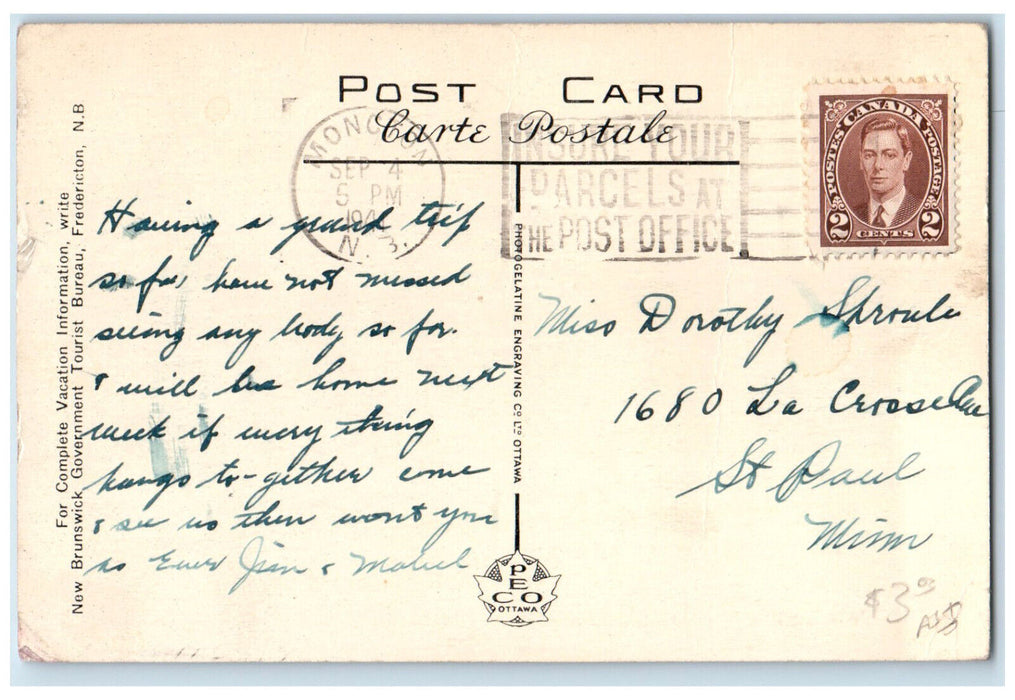 POST CARD
Carte Postale
MONCTON
SEP 4
5 PM
194
N. B.
INSURE YOUR
PARCELS AT
THE POST OFFICE
POSTES CANADA POSTAGE
2 CENTS 2
For Complete Vacation Information, write
New Brunswick Government Tourist Bureau, Fredericton, N.B
Having a grand trip
so far have not missed
seeing any body so far.
& will be home next
week if every thing
hangs to-gether come
& see us then wont you
as Ever Jim & Mabel
PHOTOGELATINE ENGRAVING CO LTD OTTAWA
PECO
OTTAWA
Miss Dorothy Sproule
1680 La Crosse Ave
St Paul
Minn
$3.00